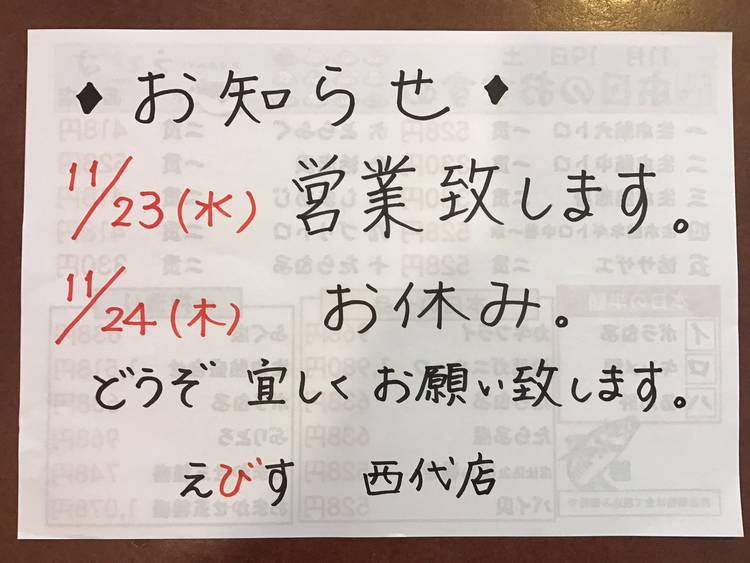 ◆お知らせ◆
11/23(水) 営業致します。
11/24(木) お休み。
どうぞ 宜しく お願い致します。
えびす 西代店